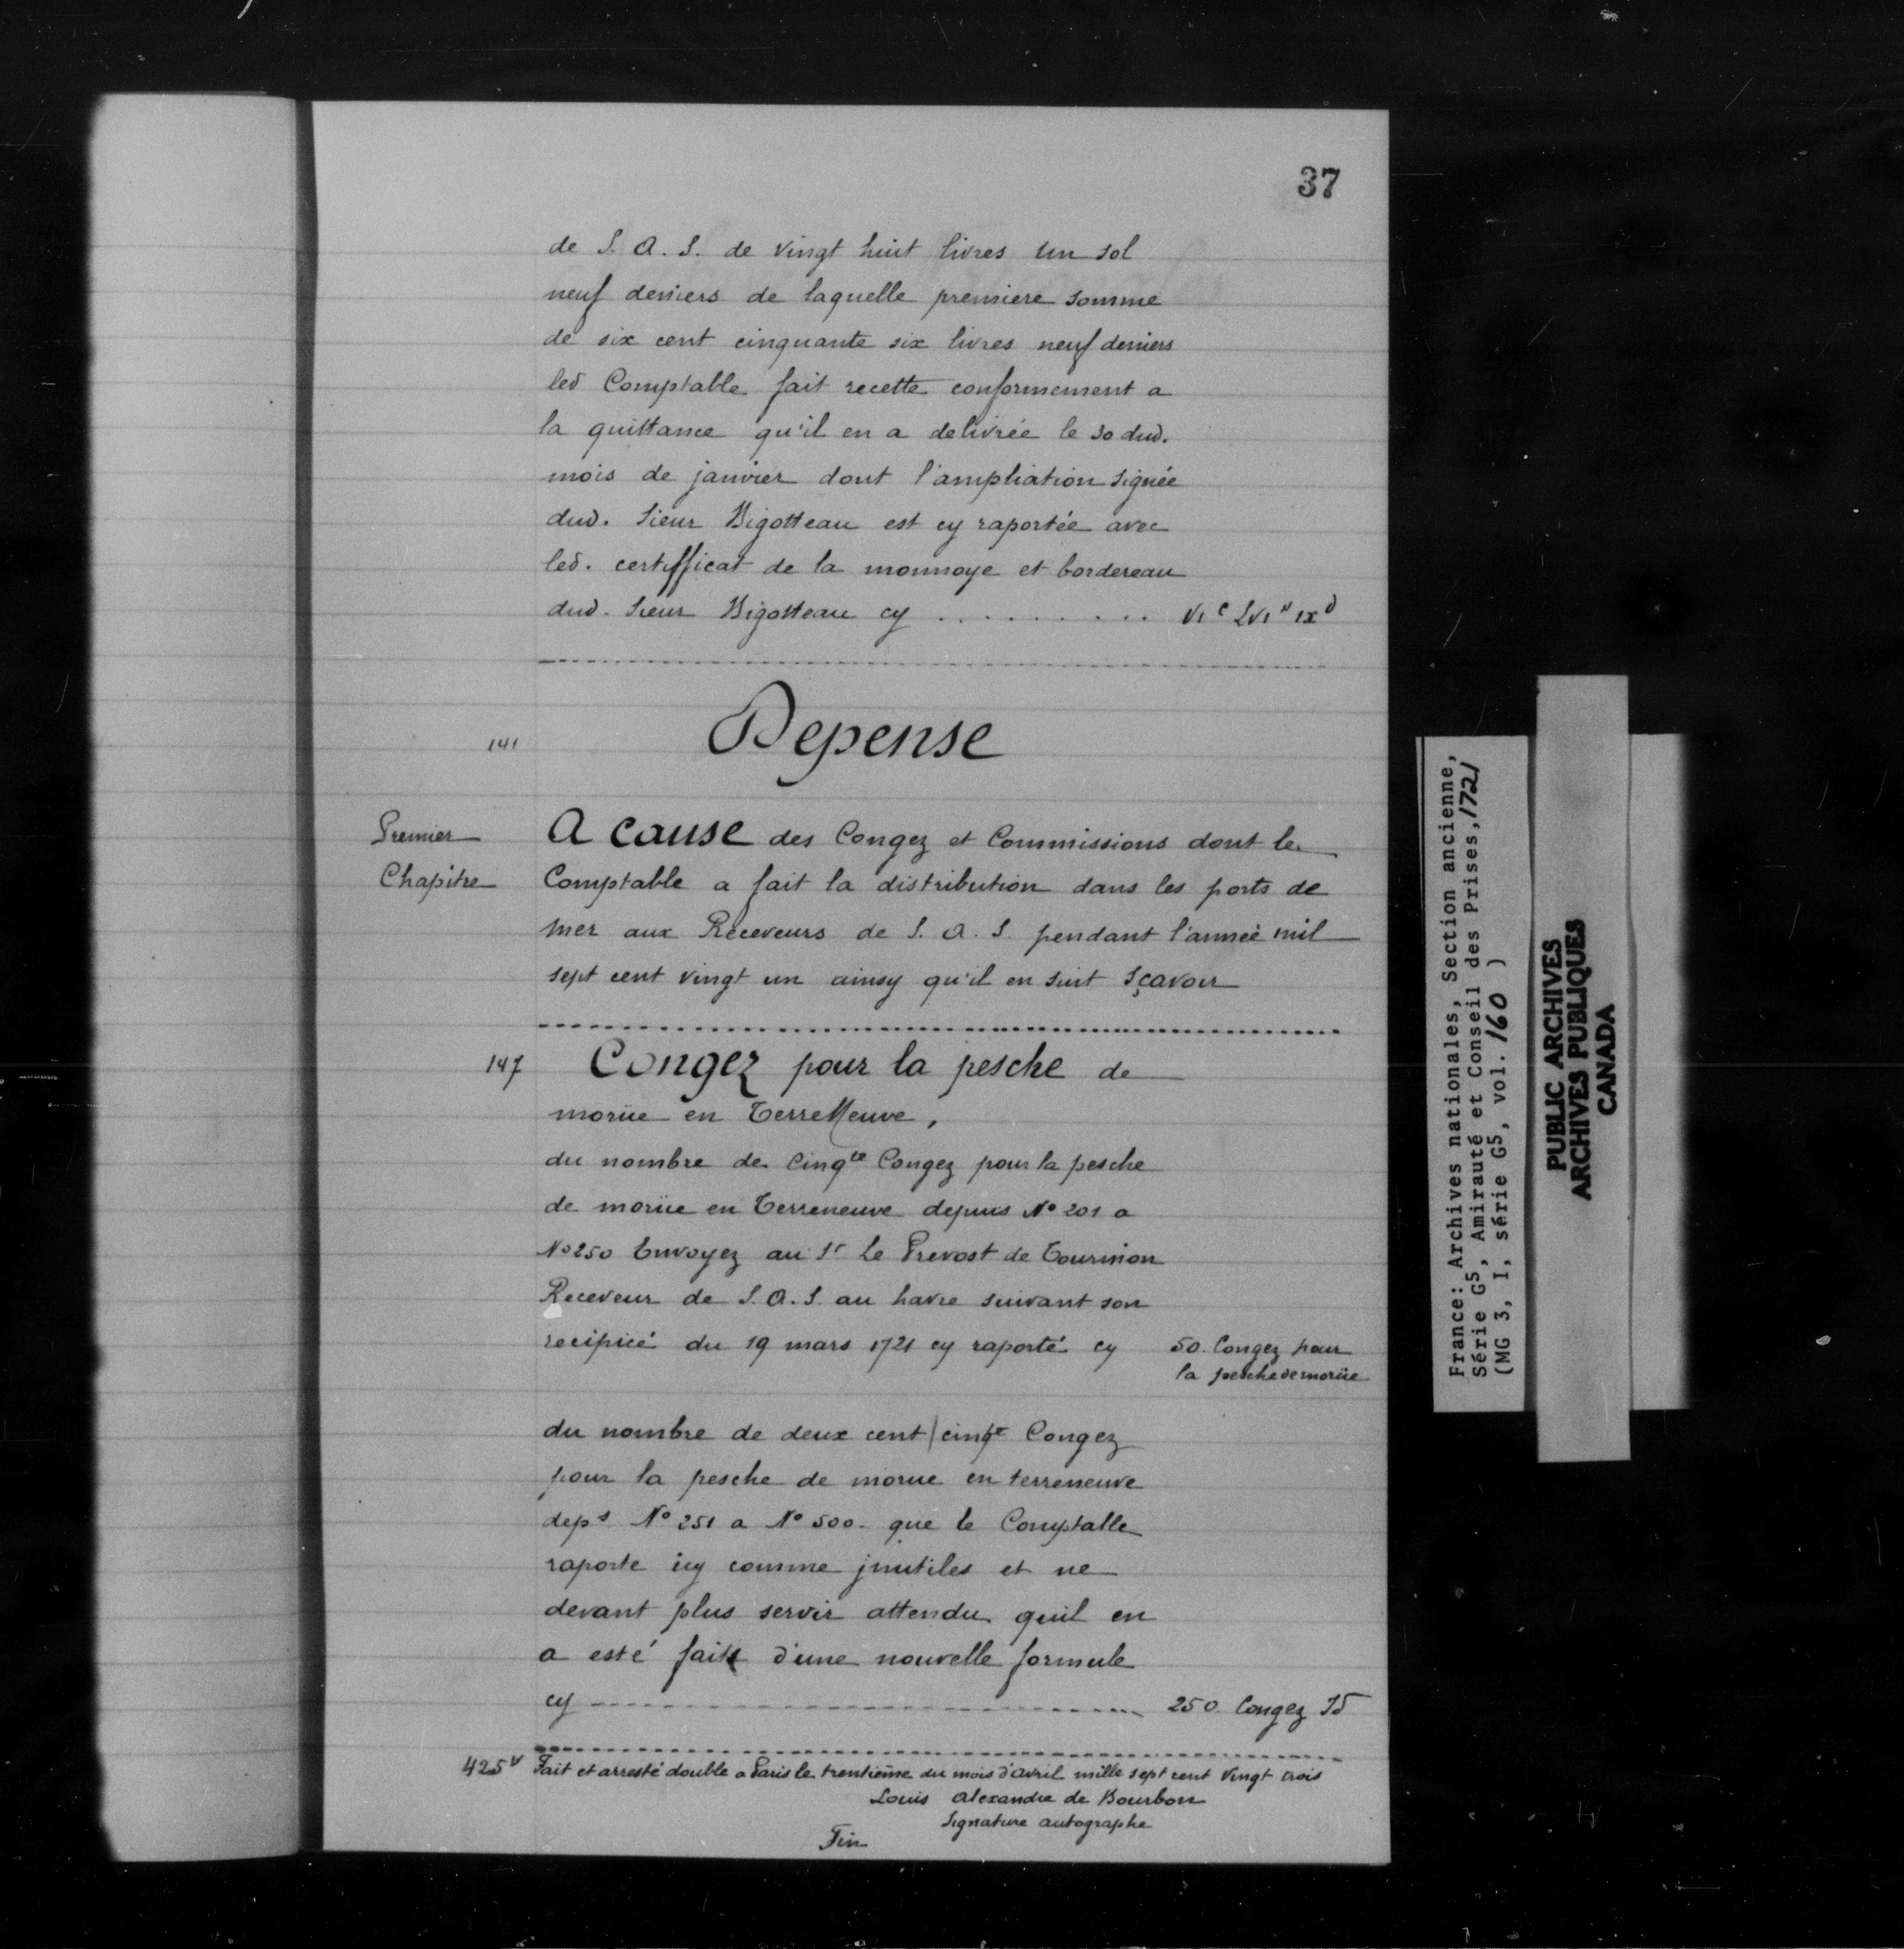 37
de S. A. S. de vingt huit livres un sol
neuf deniers de laquelle premiere somme
de six cent cinquante six livres neuf deniers
led Comptable fait recette conformement a
la quittance qu'il en a delivrée le 30 dud.
mois de janvier dont l'ampliation signée
dud. Sieur Bigotteau est cy raportée avec
led. certifficat de la monnoye et bordereau
dud. Sieur Bigotteau cy .......... VIc LVI" IXd
141 Depense
Premier A cause des Congez et Commissions dont le
Chapitre Comptable a fait la distribution dans les ports de
mer aux Receveurs de S. A. S. pendant l'année mil
sept cent vingt un ainsy qu'il en suit sçavoir
147 Congez pour la pesche de
morüe en TerreNeuve,
du nombre de Cinqte Congez pour la pesche
de morüe en Terreneuve depuis No 201 a
No 250 Envoyez au Sr Le Prevost de Tournion
Receveur de S. A. S. au havre suivant son
recipicé du 19 mars 1721 cy raporté cy 50. Congez pour
la pesche de morüe
du nombre de deux cent cinqte Congez
pour la pesche de morue en terreneuve
deps No 251 a No 500. que le Comptable
raporte icy comme jnutiles et ne
devant plus servir attendu quil en
a esté fait d'une nouvelle formule
cy 250. Congez Id
425v Fait et arresté double a Paris le trentième du mois d'avril mille sept cent vingt trois
Louis Alexandre de Bourbon
Signature autographe
Fin
France: Archives nationales, Section ancienne,
Série G5, Amirauté et Conseil des Prises, 1721
(MG 3, I, série G5, vol. 160 )
PUBLIC ARCHIVES
ARCHIVES PUBLIQUES
CANADA